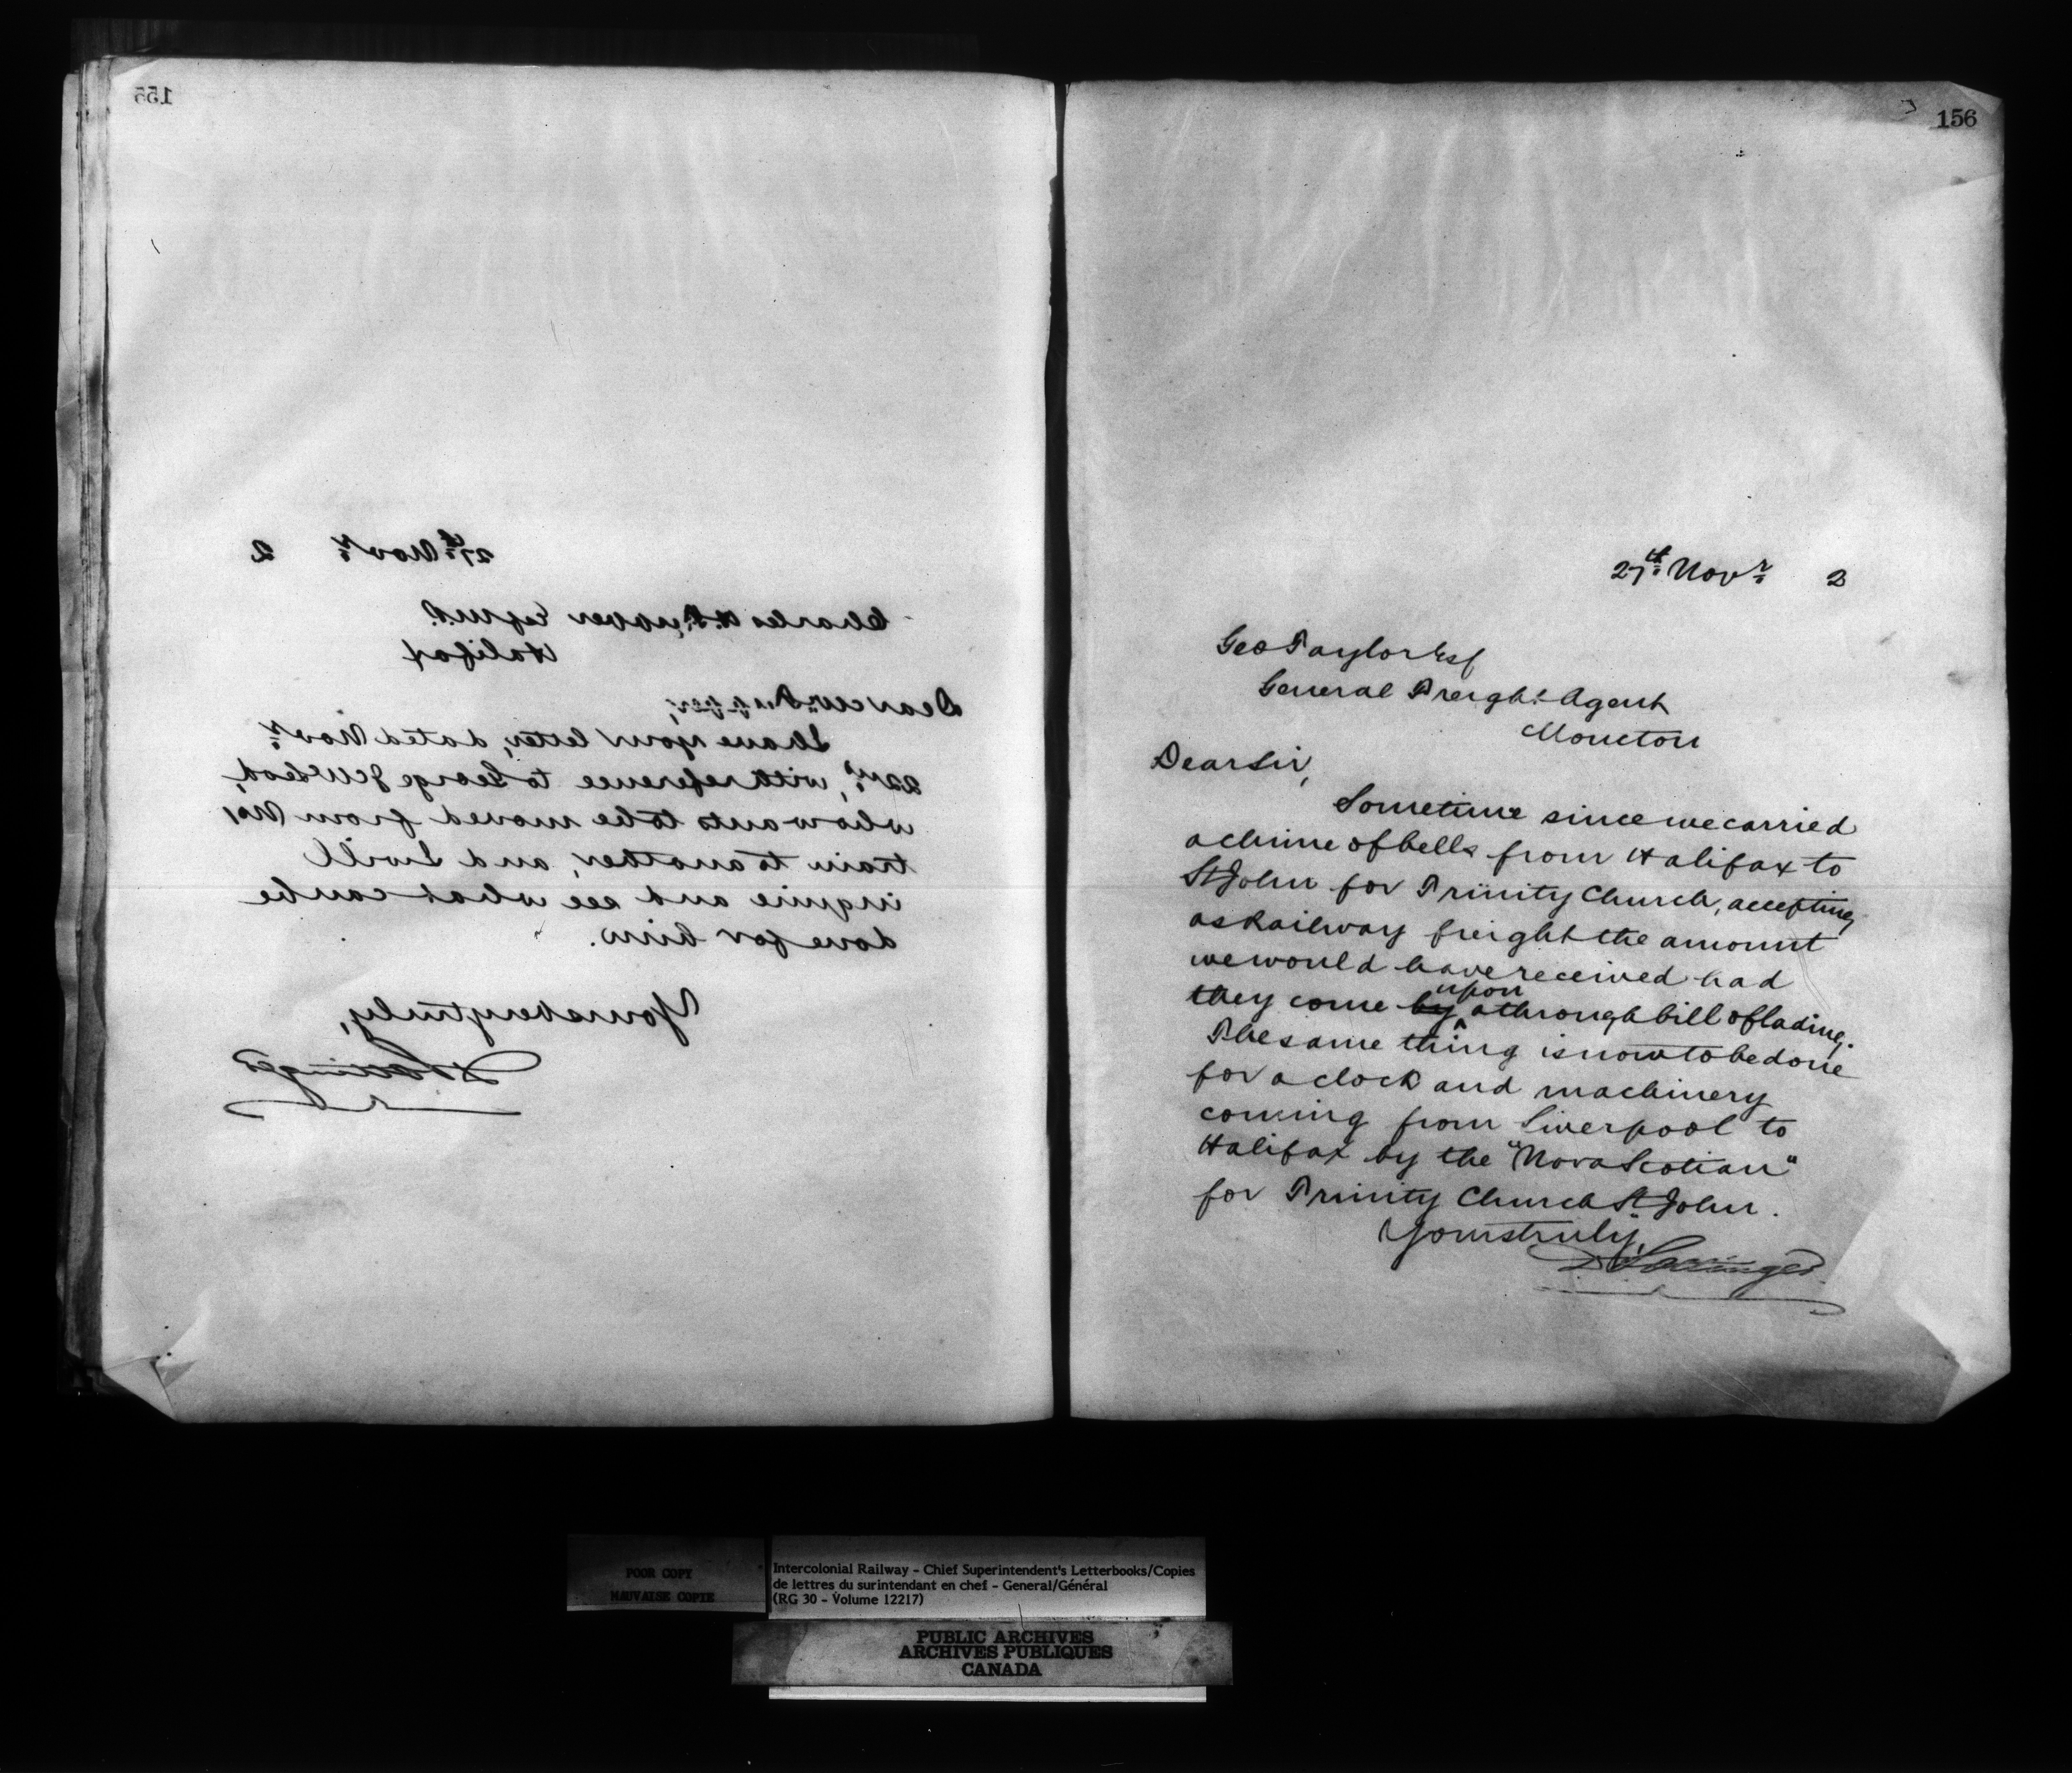 155
27th Novr 2
Charles H. Tupper Esq M.P.
Halifax
Dear Mr. Tupper,
I have your letter, dated Novr
22nd, with reference to George J McLeod,
who wants to be moved from No 1
train to another, and I will
inquire and see what can be
done for him.
Yours very truly,
D Pottinger
156
27th Novr 2
Geo Taylor Esq
General Freight Agent
Moncton
Dear Sir,
Sometime since we carried
a chime of bells from Halifax to
St John for Trinity Church, accepting
as Railway freight the amount
we would have received had
upon
they come by a through bill of lading.
The same thing is now to be done
for a clock and machinery
coming from Liverpool to
Halifax by the "Nova Scotian"
for Trinity Church St John.
Yours truly,
D Pottinger
POOR COPY
MAUVAISE COPIE
Intercolonial Railway - Chief Superintendent's Letterbooks/Copies
de lettres du surintendant en chef - General/Général
(RG 30 - Volume 12217)
PUBLIC ARCHIVES
ARCHIVES PUBLIQUES
CANADA